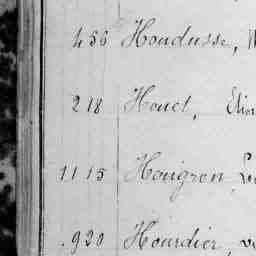 456 Houdusse,
218 Houel,
1115 Hougron
920 Hourdier,